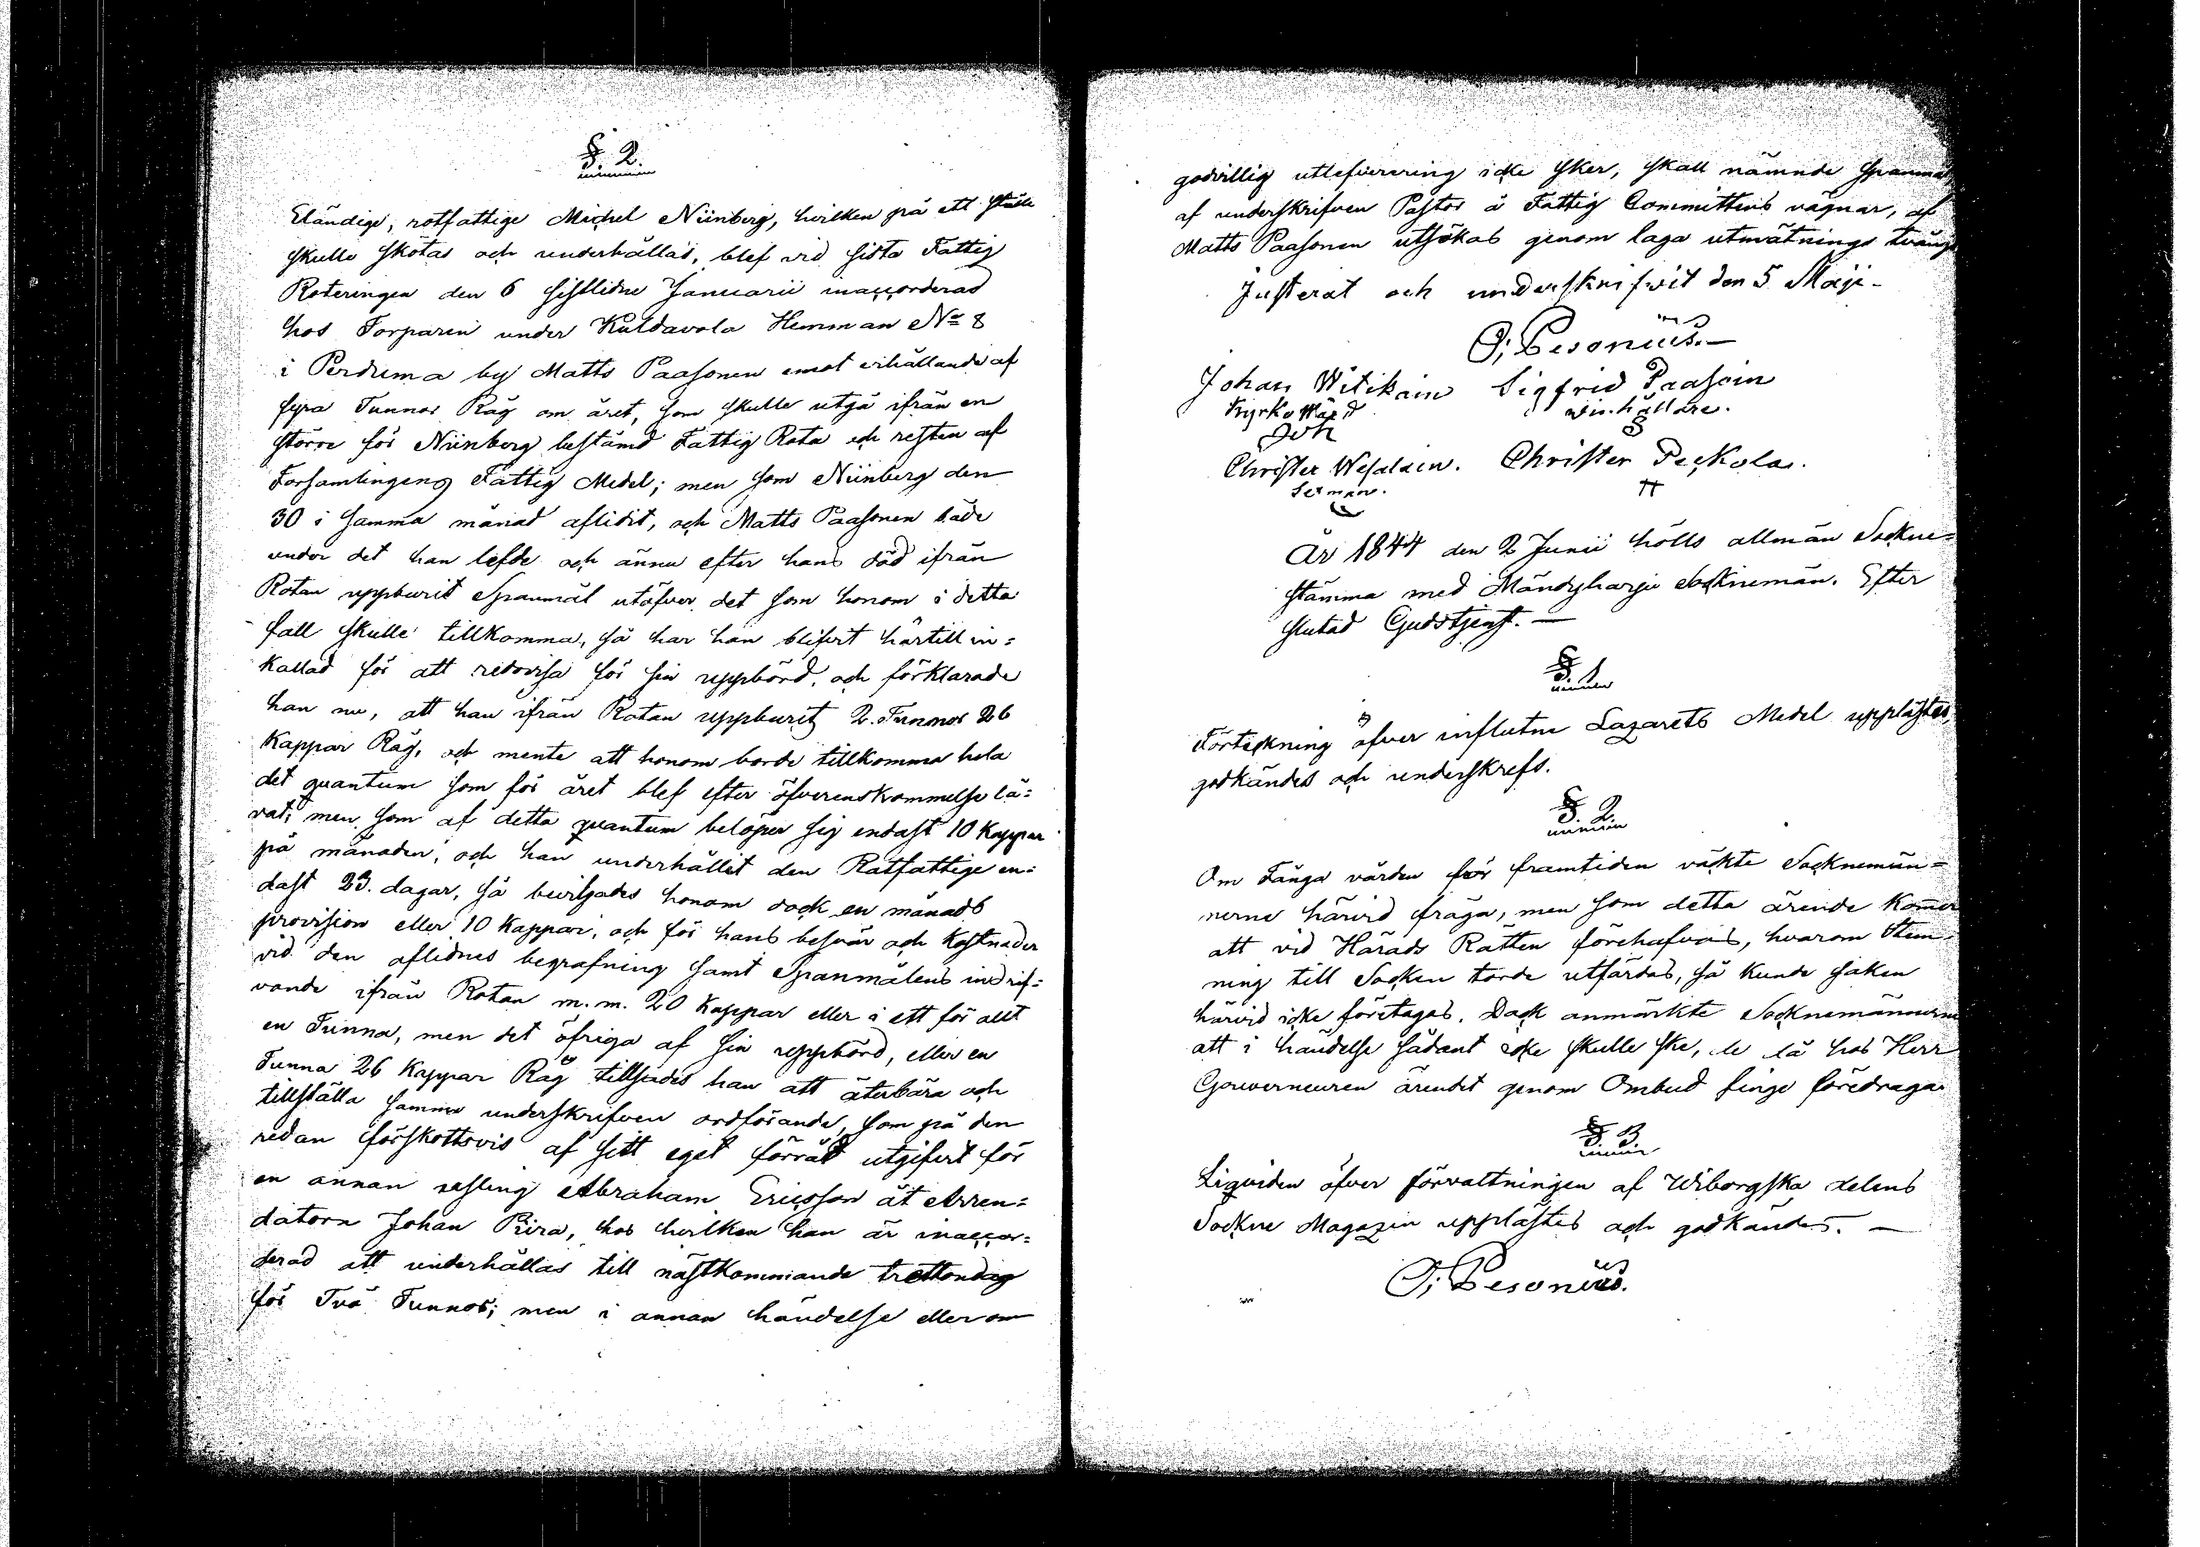 §. 2.
Eländige, rotfattige Michel Niinberg, hvilken på ett ställe
skulle skötas och underhållas, blef vid sista Fattig
Roteringen den 6 sistlidne Januarii inaccorderad
hos Torparen under Kuldavola Hemman No 8
i Perduma by Matts Paasonen emot erhållande af
fyra Tunnor Råg om året, som skulle utgå ifrån en
större för Niinberg bestämd Fattig Rota och resten af
Församlingens Fattig Medel; men som Niinberg den
30 i samma månad aflidit, och Matts Paasonen både
under det han lefde och ännu efter hans död ifrån
Rotan uppburit Spanmål utöfver det som honom i detta
fall skulle tillkomma, så har han blifvit härtill in=
kallad för att redovisa för sin uppbörd, och förklarade
han nu, att han ifrån Rotan uppburit 2. Tunnor 26
Kappar Råg, och mente att honom borde tillkomma hela
det quantum som för året blef efter öfverenskommelse lå=
vat; men som af detta quantum belöper sig endast 10 Kappar
på månaden, och han underhållit den Rotfattige en=
dast 23. dagar, så beviljades honom dock en månads
provision eller 10 Kappar, och för hans besvär och Kostnader
vid den aflidnes begrafning samt Spanmålens indrif=
vande ifrån Rotan m.m. 20 Kappar eller i ett för allt
en Tunna, men det öfriga af sin uppbörd, eller en
Tunna 26 Kappar Råg tillsades han att återbära och
tillställa samma underskrifven ordförande, som på den
redan förskottsvis af sitt eget förråd utgifvit för
en annan usling Abraham Ericsson åt Arren=
datorn Johan Piira, hos hvilken han är inaccor=
derad att underhållas till nästkommande trettondag
för Två Tunnor; men i annan händelse eller om
godvillig utlefverering icke sker, skall nämnde Spanmål
af underskrifven Pastor å Fattig Committens vägnar, af
Matts Paasonen utsökas genom laga utmätnings tvång
Justerat och underskrifvit den 5 Maji-
O; Pesonius.—
Johan Witikain Sigfrid Paasoin
Kyrko Wärd
Christer Wesalain. Christer Peckola.
Sexman.
År 1844 den 2 Junii hölls allmän Sockne=
stämma med Mändyharju Socknemän. Efter
slutad Gudstjenst.—
§. 1.
Förteckning öfver influtne Lazarets Medel upplästes,
godkändes och underskrefs.
§. 2.
Om Fånga vården för framtiden väckte Socknemän=
nerne härvid fråga, men som detta ärende kommer
att vid Härads Rätten förehafvas, hvarom Stäm-
ning till Socken torde utfärdas, så kunde saken
härvid icke företagas. Dock anmärkte Socknemännerne
att i händelse sådant icke skulle ske, de då hos Herr
Gouverneuren ärendet genom Ombud finge föredraga.
§. 3.
Liquiden öfver förvaltningen af Wiborgska delens
Sockne Magazin upplästes och godkändes.—
O; Pesonius.